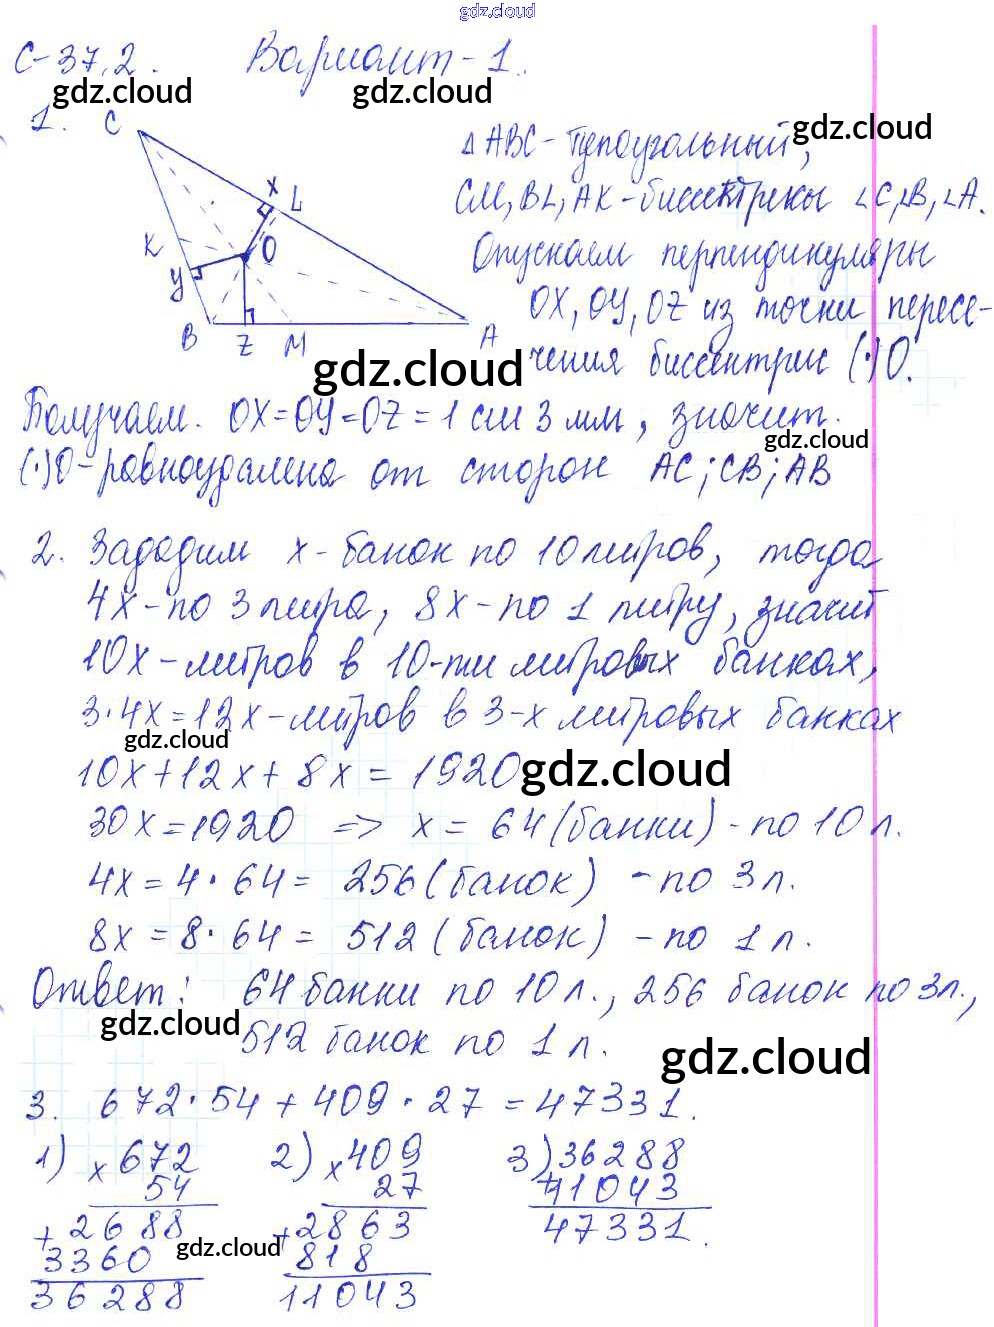 gdz.cloud
С-37.2. Вариант-1.
gdz.cloud gdz.cloud
1. C
gdz.cloud
△ABC-тупоугольный,
CM, BL, AK-биссектрисы ∠C,∠B,∠A.
Опускаем перпендикуляры
OX, OY, OZ из точки пересе-
чения биссектрис (·)O.
X L
K O
Y
B Z M A
gdz.cloud
Получаем. OX=OY=OZ=1 см 3 мм, значит.
gdz.cloud
(·)O-равноудалена от сторон AC; CB; AB
2. Зададим x-банок по 10 литров, тогда
4x-по 3 литра, 8x-по 1 литру, значит
10x-литров в 10-ти литровых банках,
3·4x=12x-литров в 3-х литровых банках
gdz.cloud
10x+12x+8x=1920
gdz.cloud
30x=1920 => x=64(банки)-по 10 л.
4x=4·64=256(банок) -по 3 л.
8x=8·64=512(банок) -по 1 л.
Ответ: 64 банки по 10 л., 256 банок по 3л.,
gdz.cloud
512 банок по 1 л.
gdz.cloud
3. 672·54+409·27=47331.
1) x672 2) x409 3) 36288
54 27 +11043
+2688 +2863 47331.
3360 818
gdz.cloud
36288 11043